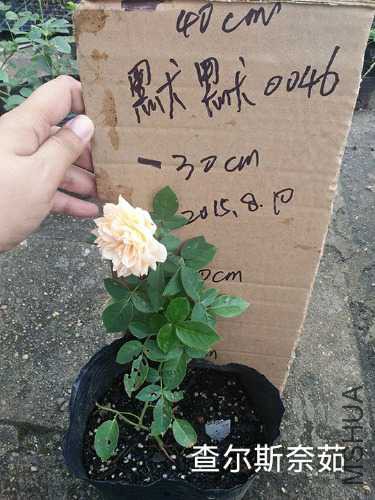 40 cm
默默 0046
- 30 cm
2015.8.10
0cm
查尔斯奈茹
MISHUA